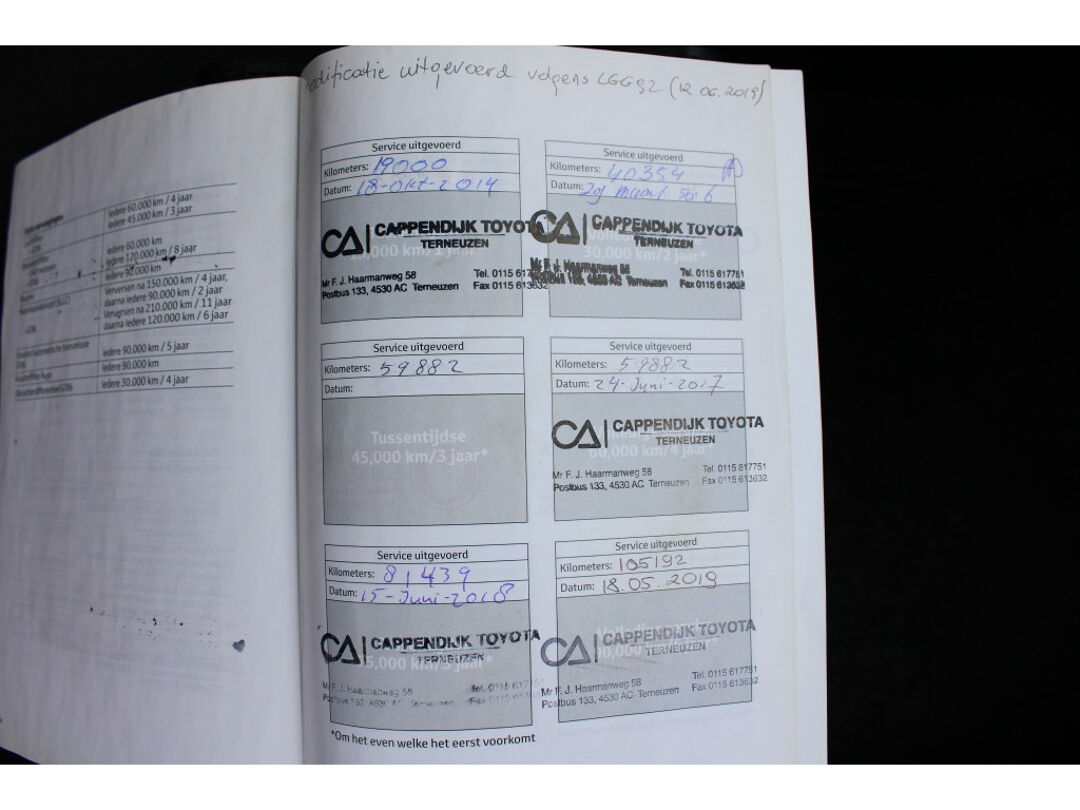 modificatie uitgevoerd volgens LGG92 (12.06.2019)
iedere 60.000 km / 4 jaar
iedere 45.000 km / 3 jaar
iedere 60.000 km
iedere 120.000 km / 8 jaar
iedere 90.000 km
Verversen na 150.000 km / 4 jaar,
daarna iedere 90.000 km / 2 jaar
Ververgsen na 210.000 km / 11 jaar
daarna iedere 120.000 km / 6 jaar
iedere 90.000 km / 5 jaar
iedere 90.000 km
iedere 30.000 km / 4 jaar
Service uitgevoerd
Kilometers: 19000
Datum: 18-okt-2014
CA CAPPENDIJK TOYOTA
TERNEUZEN
Mr F. J. Haarmanweg 58 Tel. 0115 617
Postbus 133, 4530 AC Terneuzen Fax 0115 613632
Service uitgevoerd
Kilometers: 40354
Datum: 29
CA CAPPENDIJK TOYOTA
TERNEUZEN
30,000 km/2 jaar*
Mr F. J. Haarmanweg 58 Tel. 0115 617751
Postbus 133, 4530 AC Terneuzen Fax 0115 613632
Service uitgevoerd
Kilometers: 59882
Datum:
Tussentijdse
45,000 km/3 jaar*
Service uitgevoerd
Kilometers: 59882
Datum: 24-Juni-2017
CA CAPPENDIJK TOYOTA
TERNEUZEN
60,000 km/4 jaar*
Mr F. J. Haarmanweg 58 Tel. 0115 617751
Postbus 133, 4530 AC Terneuzen Fax 0115 613632
Service uitgevoerd
Kilometers: 81439
Datum: 15-Juni-2018
CA CAPPENDIJK TOYOTA
TERNEUZEN
Mr F. J. Haarmanweg 58
Service uitgevoerd
Kilometers: 105192
Datum: 18.05.2019
CA CAPPENDIJK TOYOTA
TERNEUZEN
Mr F. J. Haarmanweg 58 Tel. 0115 617751
Postbus 133, 4530 AC Terneuzen Fax 0115 613632
*Om het even welke het eerst voorkomt